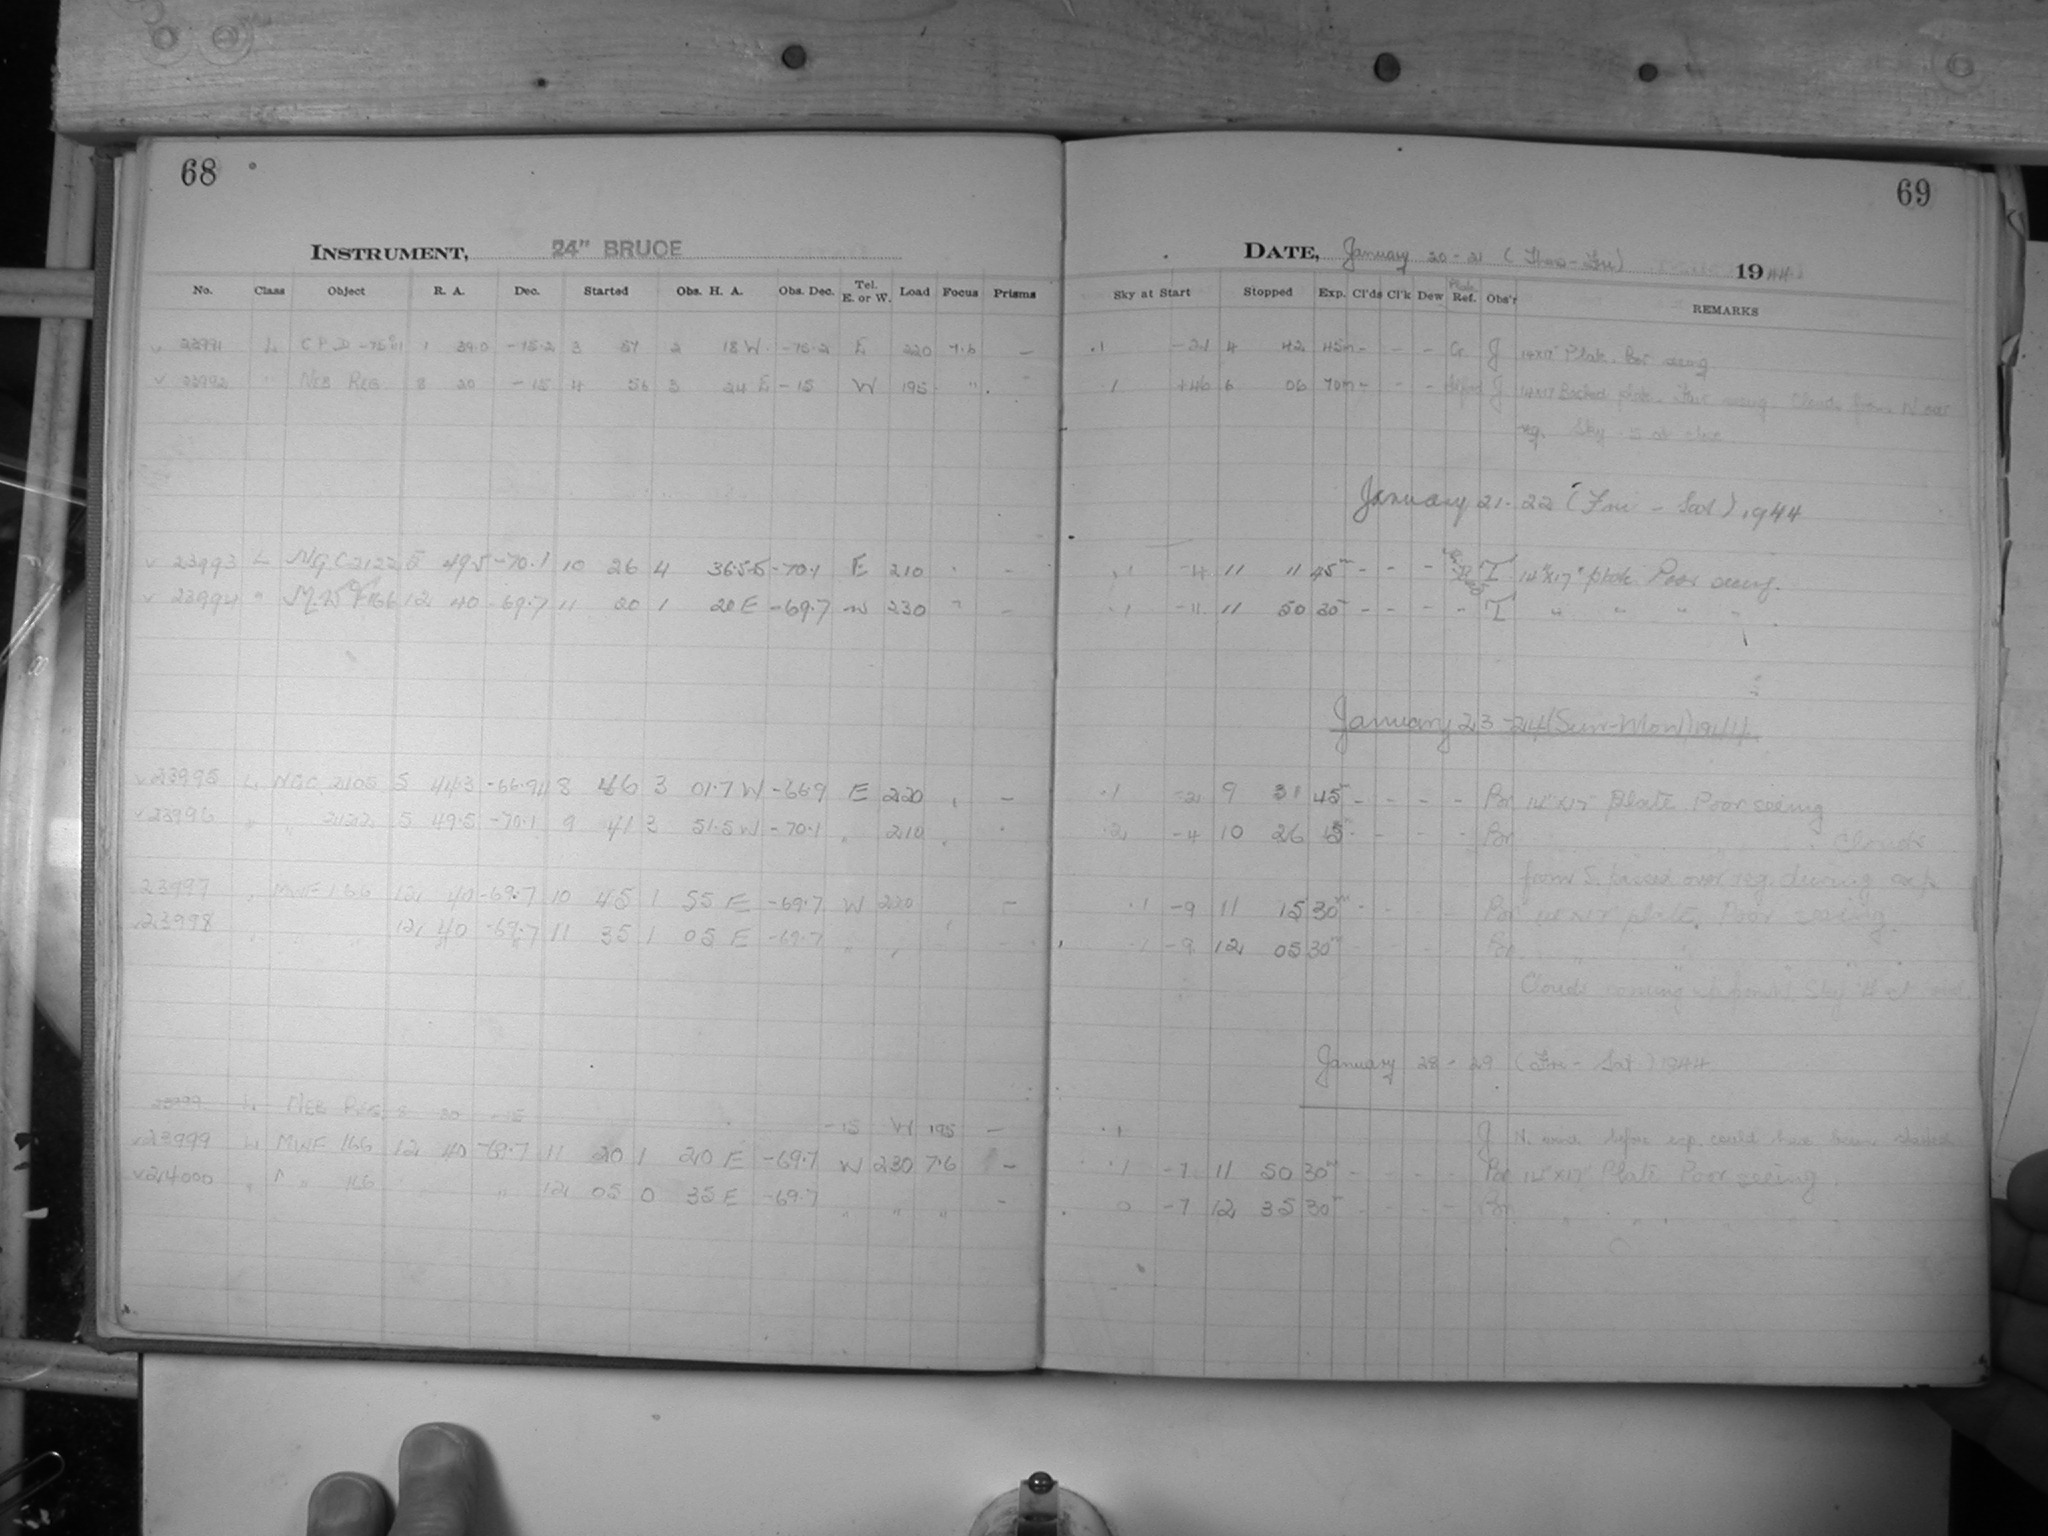 68
INSTRUMENT, 24" BRUCE
No. Class Object R. A. Dec. Started Obs. H. A. Obs. Dec. Tel. E. or W. Load Focus Prisms
23991 L C.P.D -75° 1 39.0 -75.2 3 57 2 18 W -75.2 E 220 7.6 -
23992 " NEB REG 8 20 -15 4 56 3 24 E -15 W 195 "
23993 L NGC 2122 5 49.5 -70.1 10 26 4 36.5 -70.1 E 210 -
23994 " M.W.F 166 12 40 -69.7 11 20 1 20 E -69.7 W 230 " -
23995 L NGC 2105 5 44.3 -66.94 8 46 3 01.7 W -66.9 E 220 -
23996 " " 2122 5 49.5 -70.1 9 41 3 51.5 W -70.1 " 210
23997 MWF 166 12 40 -69.7 10 45 1 55 E -69.7 W 230 -
23998 12 40 -69.7 11 35 1 05 E -69.7 "
23999 L NEB REG 8 20 -15 -15 W 195 -
23999 L MWF 166 12 40 -69.7 11 20 1 20 E -69.7 W 230 7.6 -
24000 " " 166 " 12 05 0 35 E -69.7 " " " -
69
DATE, January 20-21 (Thurs-Fri) 1944
Sky at Start Stopped Exp. Cl'ds Cl'k Dew Plate Ref. Obs'r REMARKS
.1 -21 4 42 45m - - - Cr. J 14x17" Plate. Poor seeing
.1 +46 6 06 70m - - - J 14x17 Backed plate. Fair seeing. Clouds from N over
reg. Sky .5 at close.
January 21-22 (Fri - Sat) 1944
.1 -4 11 11 45m - - - T 14"x17" plate Poor seeing.
.1 -11 11 50 30m - - - - T " " " "
January 23-24 (Sun-Mon) 1944
.1 -2 9 31 45m - - - - Por 14"x17" Plate Poor seeing
.2 -4 10 26 - - - Por Clouds
from S. passed over reg. during exp
.1 -9 11 15 30m - - - Por 14"x17" plate. Poor seeing.
.1 -9 12 05 30m - - - Por "
Clouds coming up Sky .4 at
January 28-29 (Fri - Sat) 1944
.1 J N. before exp. could have been started
.1 -7 11 50 30m - - - - Por 14"x17" Plate Poor seeing.
0 -7 12 35 30m - - - - Por " " "